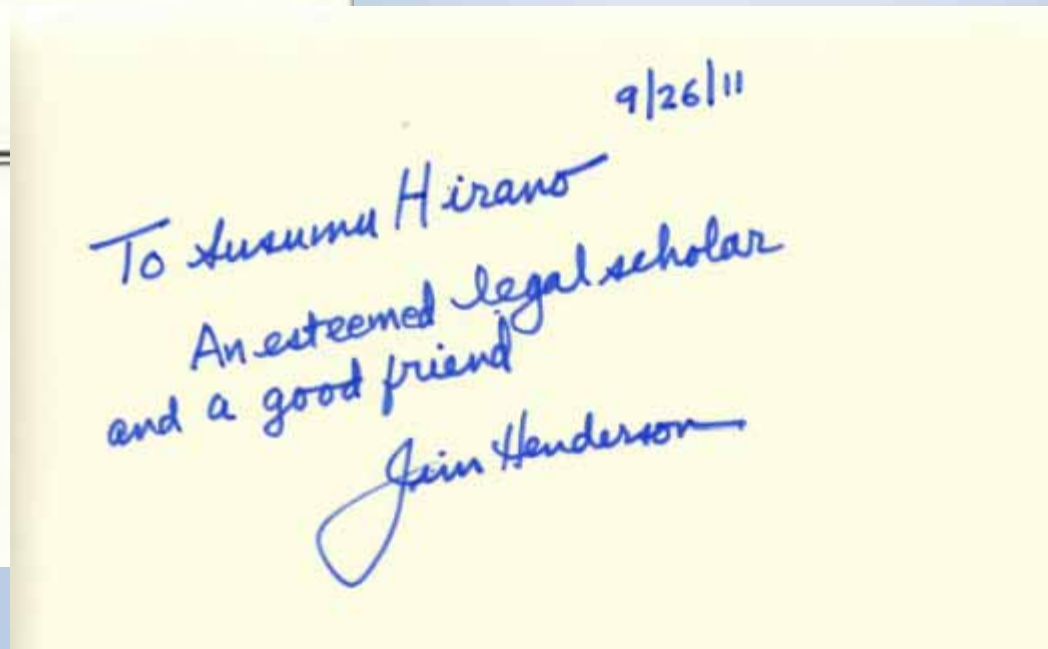 9/26/11
To Susumu Hirano
An esteemed legal scholar
and a good friend
Jim Henderson